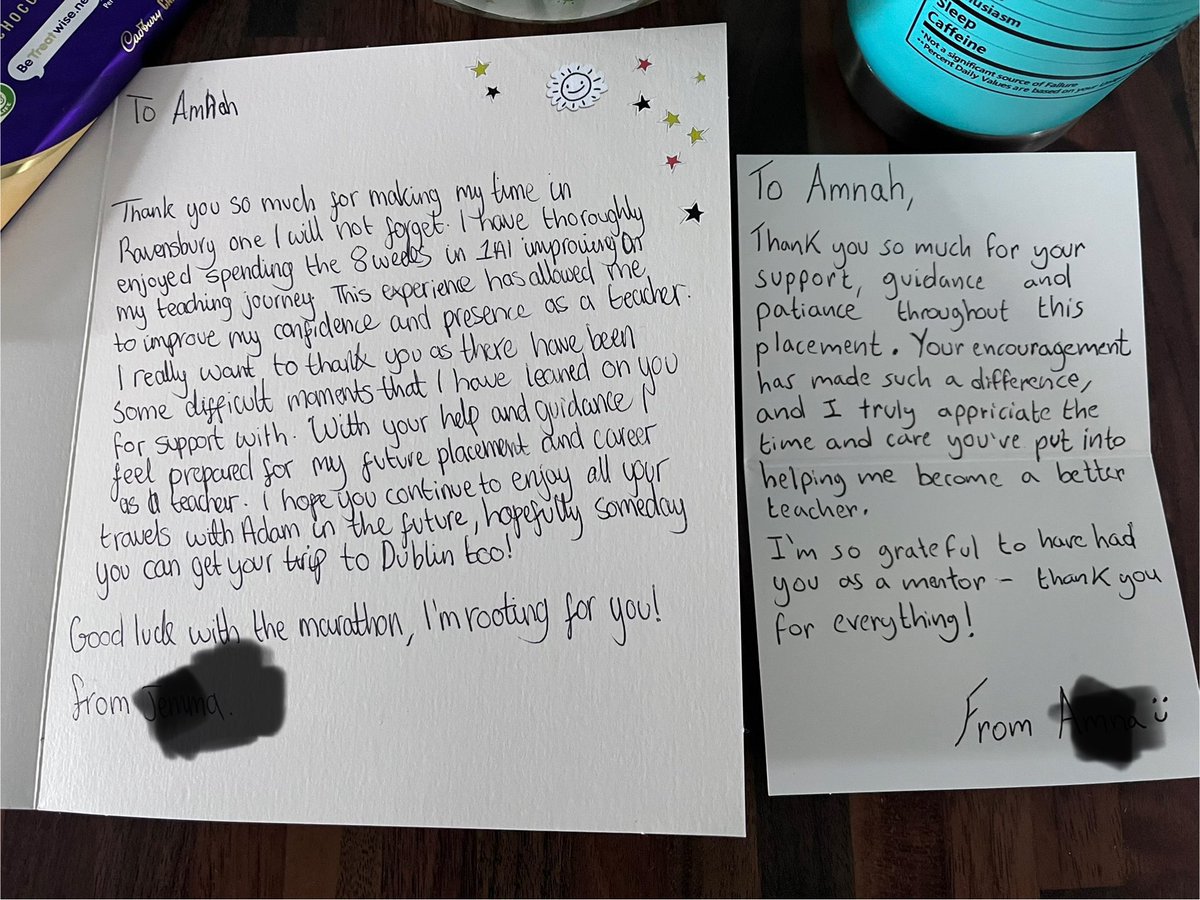 CHOCO
BeTreatwise.ne
Cadbury
usiasm
Sleep
Caffeine
*Not a significant source of Failure
**Percent Daily Values are based on your
To Amnah
Thank you so much for making my time in
Ravensbury one I will not forget. I have thoroughly
enjoyed spending the 8 weeks in 1AI improving on
my teaching journey. This experience has allowed me
to improve my confidence and presence as a teacher.
I really want to thank you as there have been
some difficult moments that I have leaned on you
for support with. With your help and guidance I
feel prepared for my future placement and career
as a teacher. I hope you continue to enjoy all your
travels with Adam in the future, hopefully someday
you can get your trip to Dublin too!
Good luck with the marathon, I'm rooting for you!
from
To Amnah,
Thank you so much for your
support, guidance and
patiance throughout this
placement. Your encouragement
has made such a difference,
and I truly appriciate the
time and care you've put into
helping me become a better
teacher.
I'm so grateful to have had
you as a mentor – thank you
for everything!
From